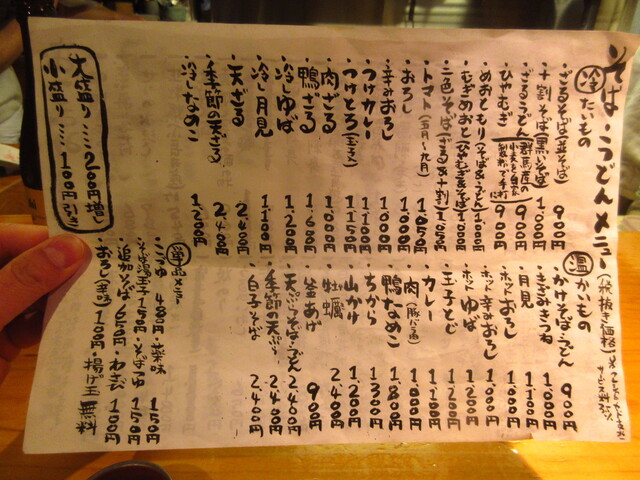 そば・うどんメニュー
(税抜き価格)
冷たいもの
・ざるそば(並そば) 900円
・十割そば(黒いそば) 1,000円
・ざるうどん 900円
・ひやむぎ 900円
・めおともり(そば&うどん) 1,000円
・むぎめおと(ひやむぎ&そば) 1,000円
・二色そば(ざる&十割) 1,050円
・トマト(五月〜九月) 1,050円
・おろし 1,000円
・辛みおろし 1,100円
・つけカレー 1,000円
・つけとろ 1,150円
・肉ざる 1,000円
・鴨ざる 1,600円
・冷しゆば 1,200円
・冷し月見 1,100円
・天ざる 2,400円
・季節の天ざる 2,400円
・冷しなめこ 1,200円
大盛り ミミ 200円増し
小盛り ミミ 100円引き
温かいもの
・かけそば・うどん 900円
・きざみきつね 1,000円
・月見 1,100円
・ホットおろし 1,000円
・ホット辛みおろし 1,100円
・ホットゆば 1,200円
・玉子とじ 1,200円
・カレー 1,100円
・肉 1,000円
・鴨なめこ 1,800円
・ちから 1,300円
・山かけ 1,200円
・牡蠣 2,400円
・釜あげ 900円
・天ぷらそば・うどん 2,400円
・季節の天ぷら 2,400円
・白子そば 2,400円
単品メニュー
・そばつゆ 150円
・追加そば 650円
・わさび 100円
・おろし(辛味) 100円
・揚げ玉 無料